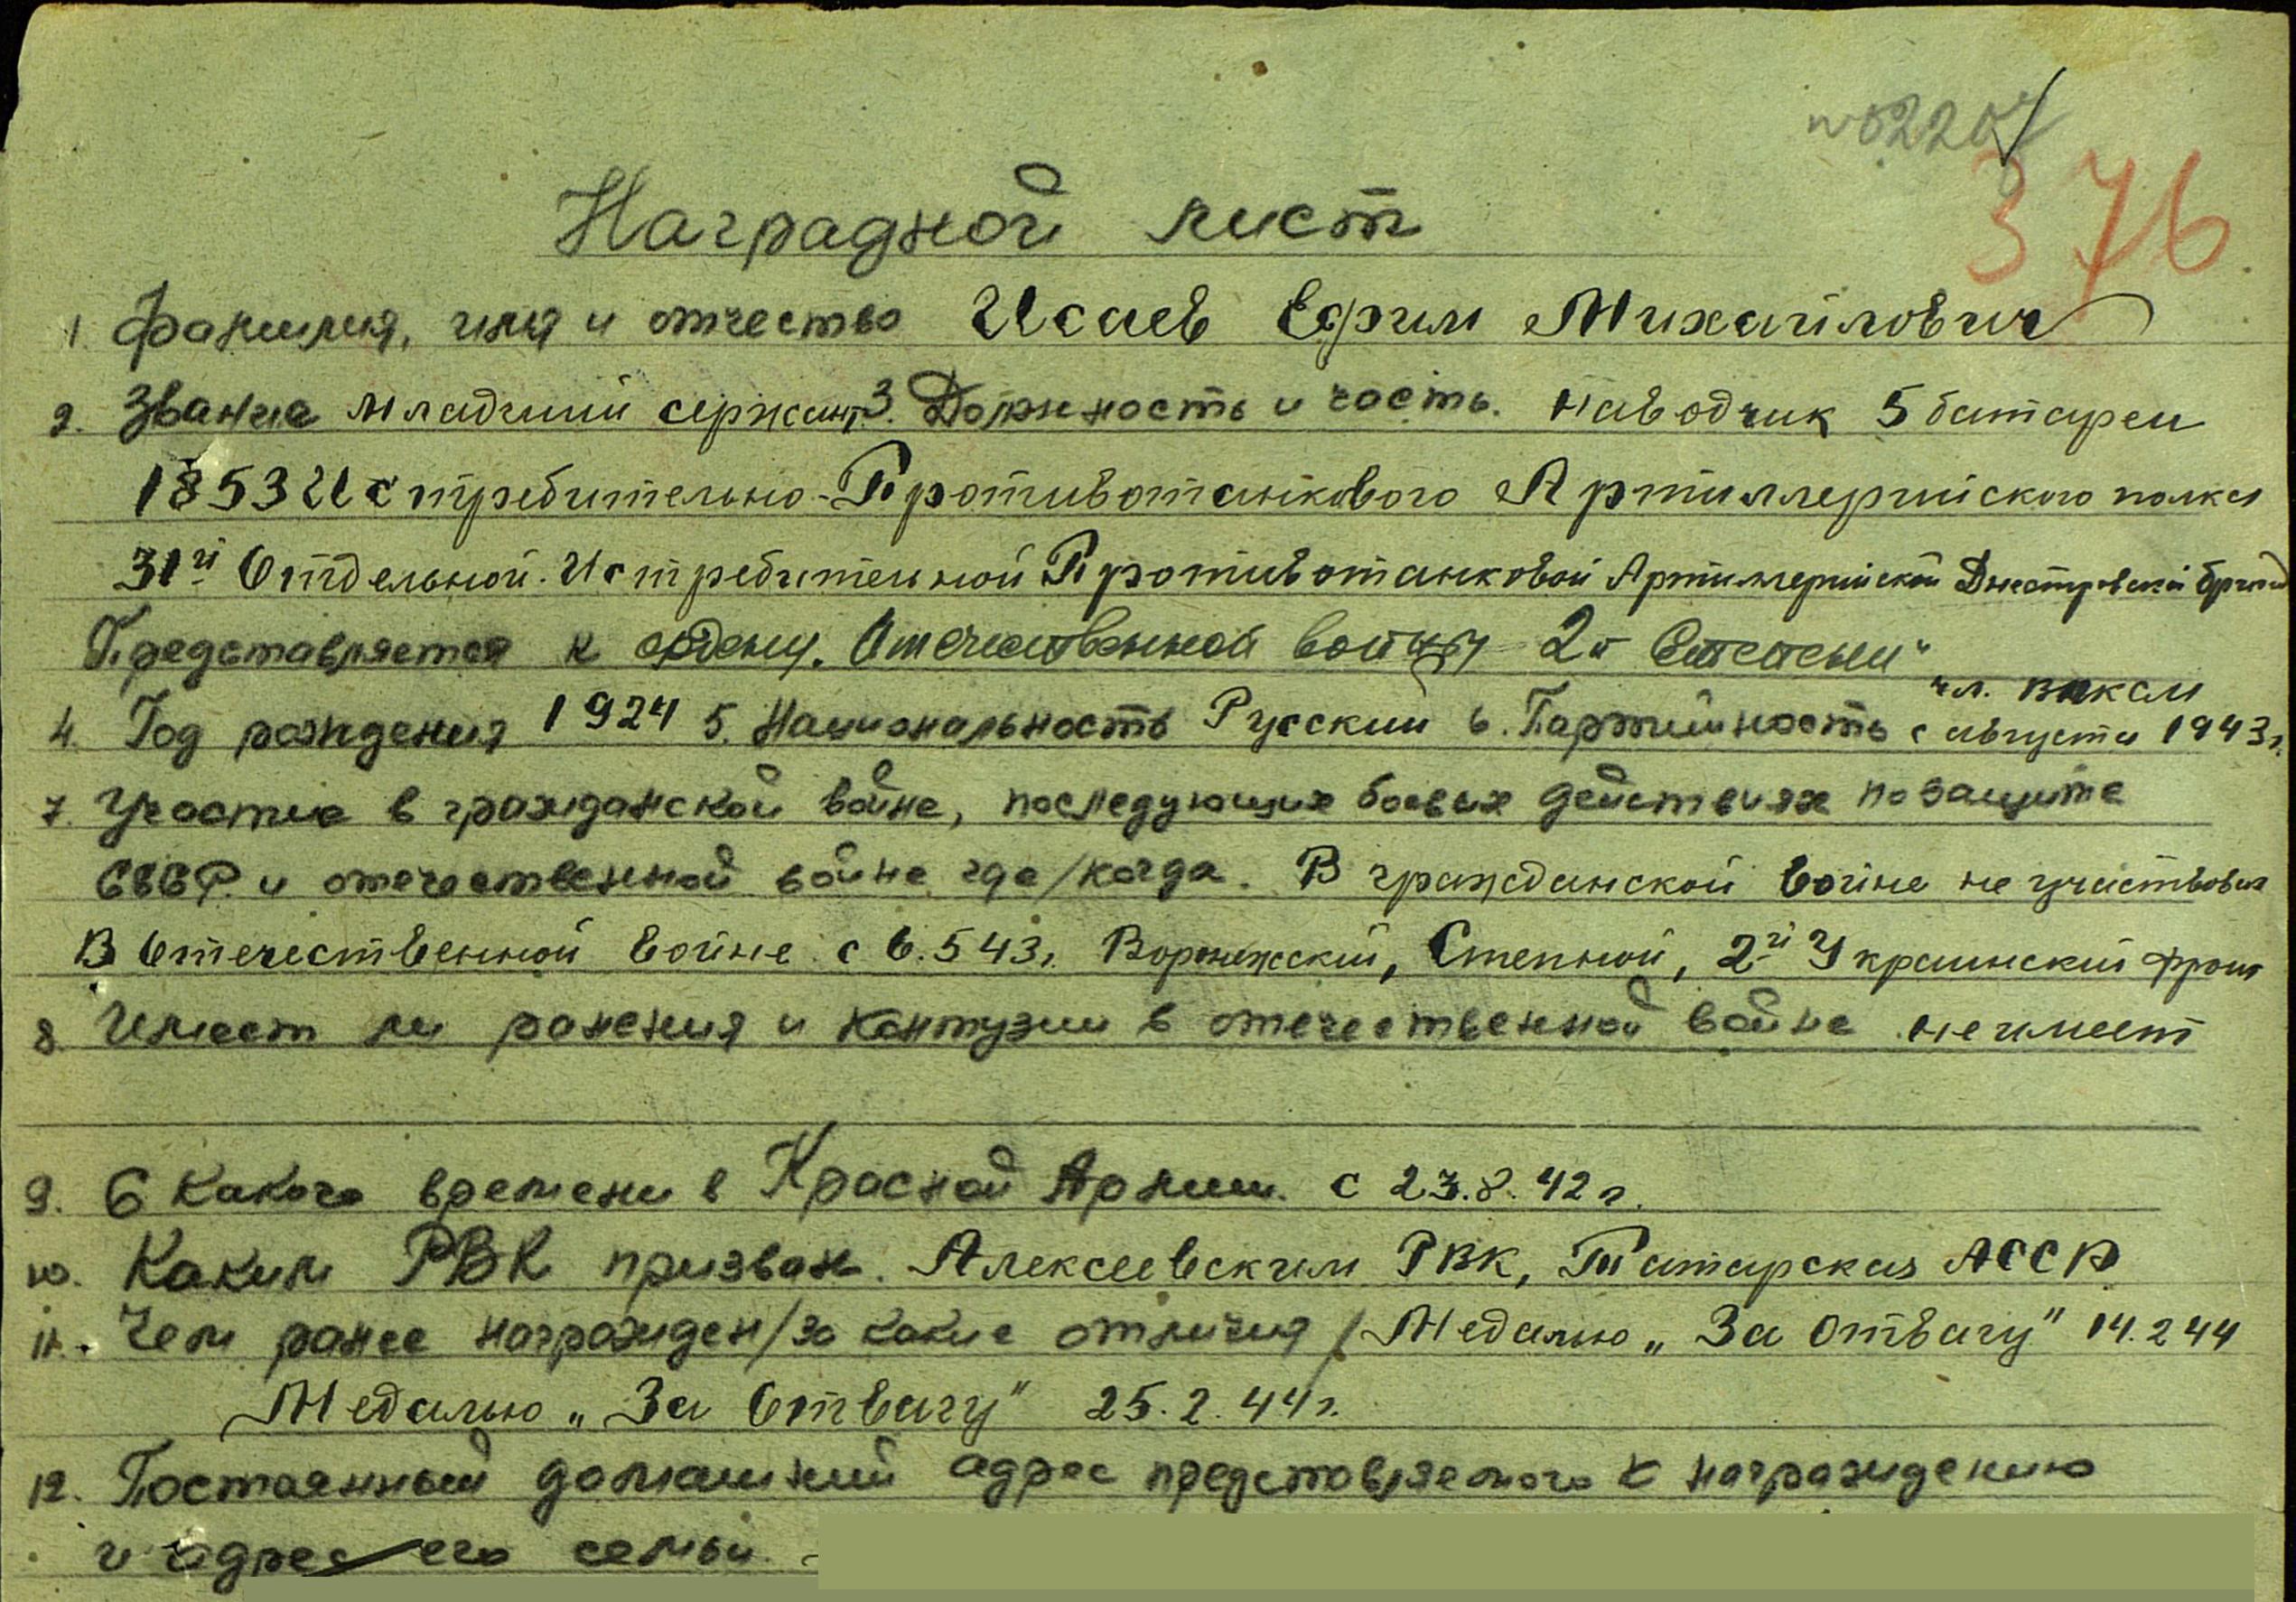 376
Наградной лист
1. Фамилия, имя и отчество Исаев Ефим Михайлович
2. Звание младший сержант 3. Должность и часть. наводчик 5 батареи
1853 Истребительно-Противотанкового Артиллерийского полка
31й Отдельной Истребительной Противотанковой Артиллерийской Днестровской бригад
Представляется к ордену. Отечественной войны 2й Степени"
чл. ВЛКСМ
4. Год рождения 1924 5. Национальность Русский 6. Партийность с августа 1943г.
7. Участие в гражданской войне, последующих боевых действиях по защите
СССР и отечественной войне где/когда. В гражданской войне не участвовал
В Отечественной войне с 6.5 43г. Воронежский, Степной, 2й Украинский фронт
8. Имеет ли ранения и контузии в отечественной войне не имеет
9. С какого времени в Красной Армии. с 23.8.42 г.
10. Каким РВК призван. Алексеевским РВК, Татарская АССР
11. Чем ранее награжден/за какие отличия/ Медалью „За отвагу" 14.2 44
Медалью „За Отвагу" 25.2.44г.
12. Постоянный домашний адрес представляемого к награждению
и адрес его семьи